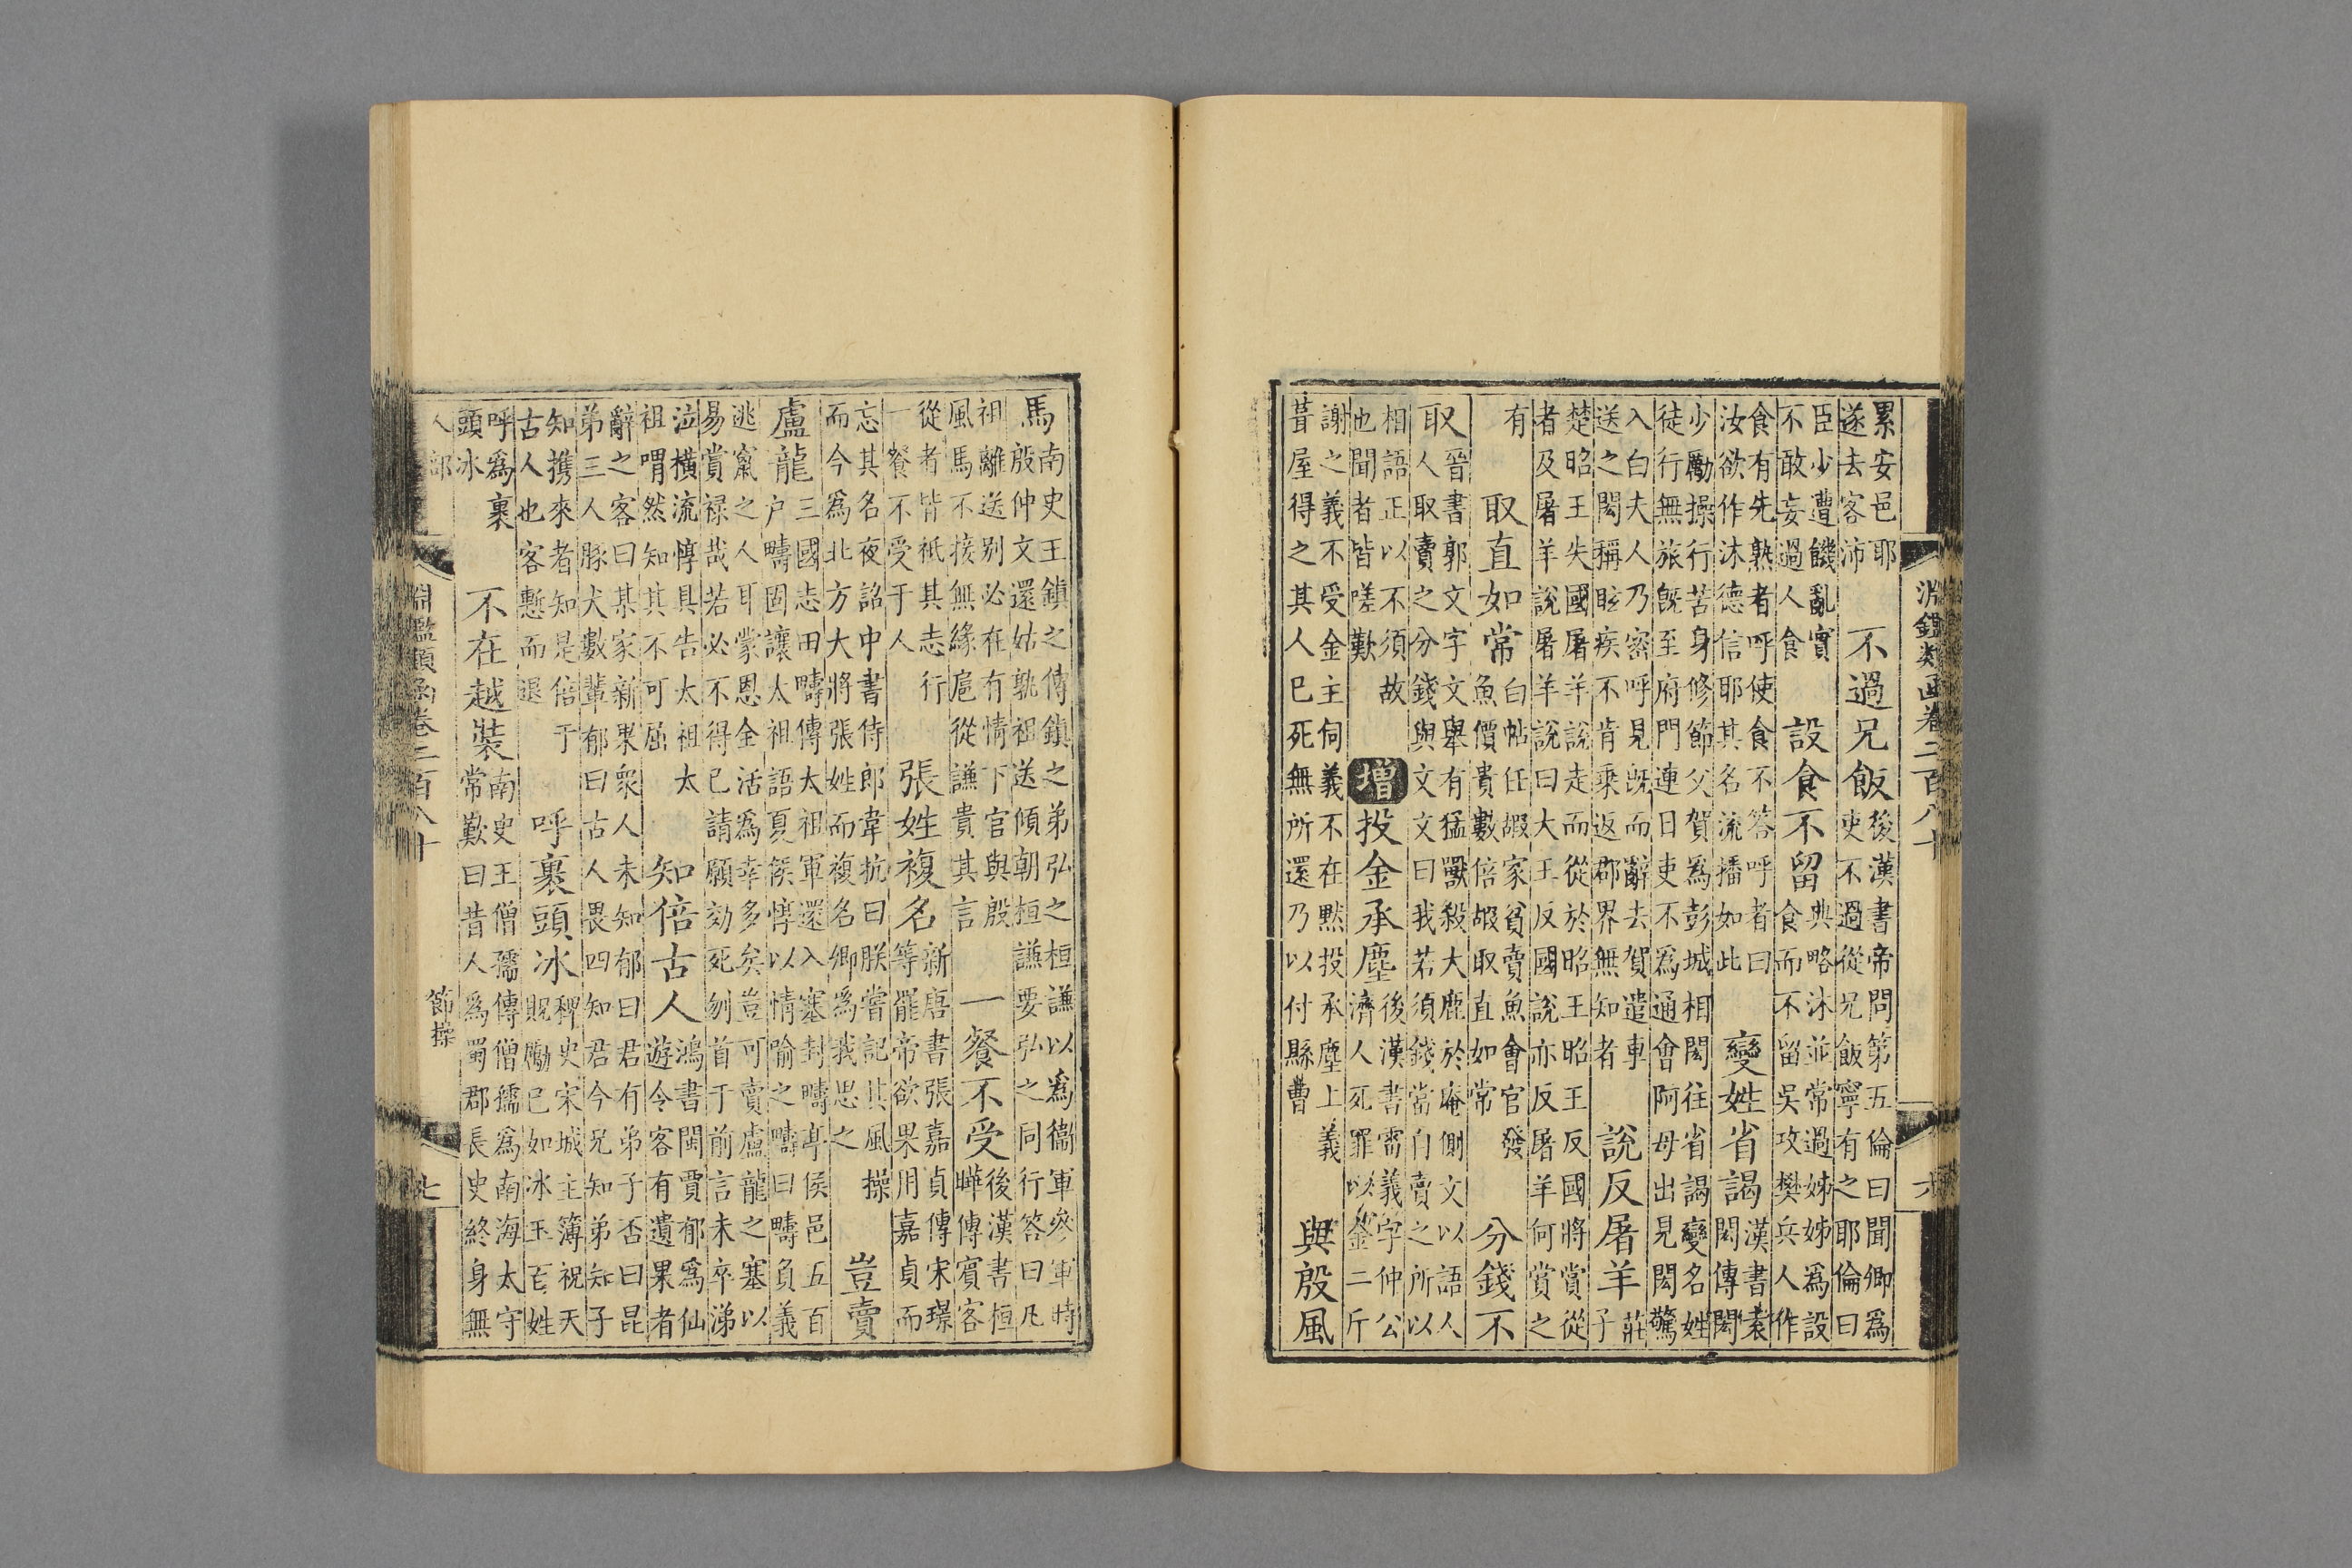 淵鑑類函卷二百八十 六
累安邑耶
遂去客沛
不過兄飯
後漢書帝問第五倫曰聞卿爲
吏不過從兄飯寧有之耶倫曰
臣少遭饑亂實
不敢妄過人食
設食不留
典略沐並常過姊姊爲設
食而不留吳攻樊兵人作
食有先熟者呼使食不答呼者曰
汝欲作沐德信耶其名流播如此
變姓省謁
漢書袁
閎傳閎
少勵操行苦身修節父賀爲彭城相閎往省謁變名姓
徒行無旅旣至府門連日吏不爲通會阿母出見閎驚
入白夫人乃密呼見旣而辭去賀遣車
送之閎稱眩疾不肯乘返郡界無知者
說反屠羊
莊
子
楚昭王失國屠羊說走而從於昭王昭王反國將賞從
者及屠羊說屠羊說曰大王反國說亦反屠羊何賞之
有
取直如常
白帖任嘏家貧賣魚會官發
魚價貴數倍嘏取直如常
分錢不
取
晉書郭文字文舉有猛獸殺大麀於庵側文以語人
人取賣之分錢與文文曰我若須錢當自賣之所以
相語正以不須故
也聞者皆嗟歎
增
投金承塵
後漢書雷義字仲公
濟人死罪以金二斤
謝之義不受金主伺義不在默投承塵上義
葺屋得之其人已死無所還乃以付縣曹
與殷風
馬
南史王鎮之傳鎮之弟弘之桓謙以爲衞軍參軍時
殷仲文還姑孰祖送傾朝桓謙要弘之同行答曰凡
祖離送别必在有情下官與殷
風馬不接無緣扈從謙貴其言
一餐不受
後漢書桓
曄傳賓客
從者皆祇其志行
一餐不受于人
張姓複名
新唐書張嘉貞傳宋璟
等罷帝欲果用嘉貞而
忘其名夜詔中書侍郎韋抗曰朕嘗記其風操
而今爲北方大將張姓而複名卿爲我思之
豈賣
盧龍
三國志田疇傳太祖軍還入塞封疇亭侯邑五百
户疇固讓太祖語夏侯惇以情喻之疇曰疇負義
逃竄之人耳蒙恩全活爲幸多矣豈可賣盧龍之塞以
易賞禄哉若必不得已請願効死刎首于前言未卒涕
泣橫流惇具告太祖太
祖喟然知其不可屈
知倍古人
鴻書閩賈郁爲仙
遊令客有遺果者
辭之客曰某家新果衆人未知郁曰君有弟子否曰昆
弟三人豚犬數輩郁曰古人畏四知君今兄知弟知子
知携來者知是倍于
古人也客慙而退
呼裹頭冰
稗史宋城主簿祝天
貺勵已如冰玉百姓
呼爲裹
頭冰
不在越裝
南史王僧孺傳僧孺爲南海太守
常歎曰昔人爲蜀郡長史終身無
人部
淵鑑類函卷二百八十 節操 七